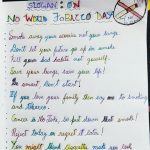 SLOGAN : ON
NO WORLD TOBACCO DAY
Smoke away your worries not your lungs.
Don't let your future go up in smoke
Kill your bad habits not yourself.
Save your lungs, save your life!
Be smart, don't start!
If you love your family then say no to smoking and tobacco.
Cancer is No Joke, so put down that smoke!
Reject today or regret it later!
You might think cigarette make you look